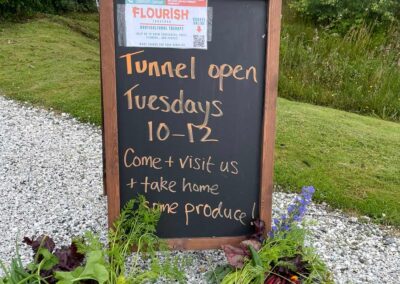 FLOURISH
Tunnel open
Tuesdays
10-12
Come + visit us
+ take home
some produce!